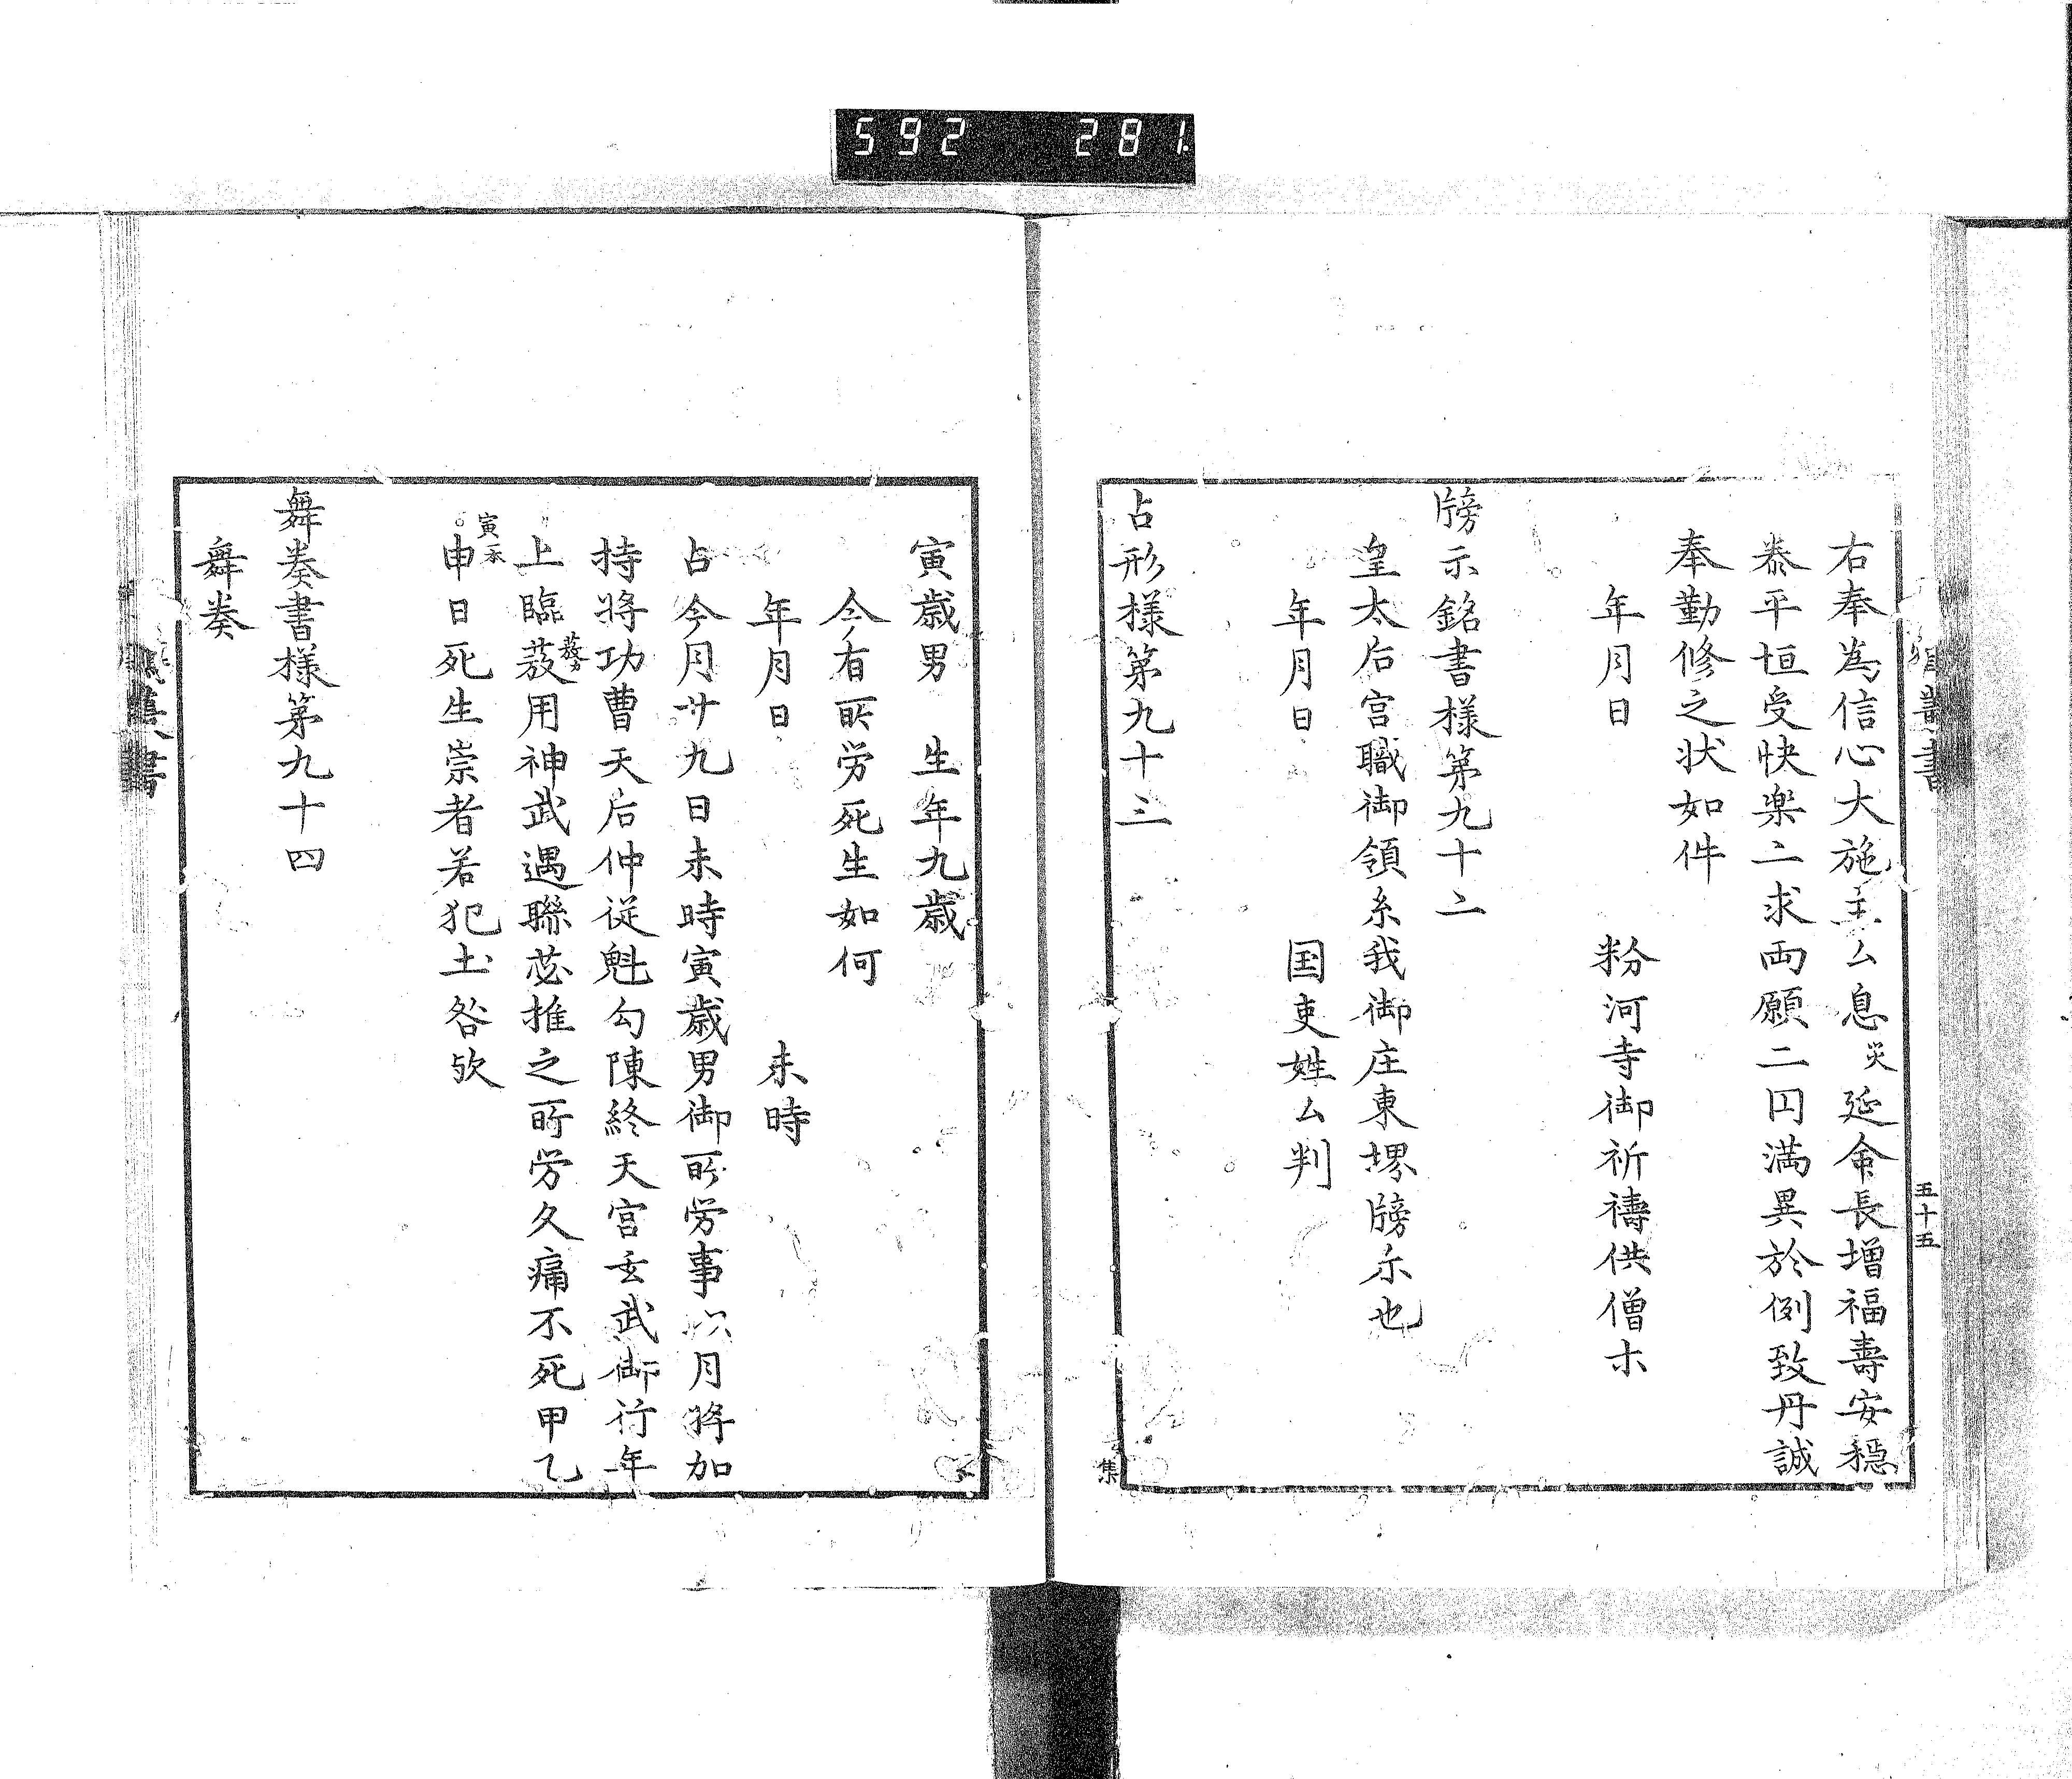 592 281
右奉為信心大施主ム息災延命長増福壽安穏
泰平恒受快楽二求両願二円満異於例致丹誠
奉勤修之状如件
年月日 粉河寺御祈禱供僧木
牓示銘書様第九十二
皇太后宮職御領糸我御庄東堺牓示也
年月日 国吏姓ム判
占形様第九十三
五十五
集
寅歳男 生年九歳
今有所労死生如何
年月日 未時
占今月廿九日未時寅歳男御所労事 月将加
持将功曹天后仲従魁勾陳終天宮玄武御行年
上臨 用神武遇聯茲推之所労久痛不死甲乙
寅一本
申日死生崇者若犯土咎欤
舞奏書様第九十四
舞奏